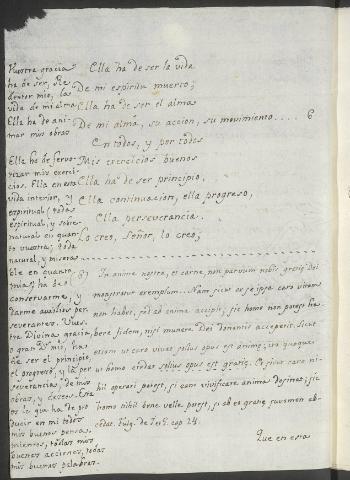 Vuestra gracia
ha de ser, Re-
dentor mio, la
vida de mi alma
Ella ha de ani-
mar mis obras
Ella ha de fervo-
rizar mis exerci-
cios. Ella en esta
vida interior, y
espiritual; toda
espiritual, y sobre-
natural en quan-
to vuestra; toda
natural, y misera-
ble en quanto
mia; ha de
conservarme, y
darme auxilios per-
severantes. Vues-
tra Divina gracia,
o gran Dios mio, ha
de ser el principio,
el progreso, y la per-
severancia, de mis
obras, y deseos. Esta
es la que ha de pro-
ducir en mi todos
mis buenos pensa-
mientos, todas mis
buenas acciones, todas
mis buenas palabras.
Ella ha de ser la vida
De mi espiritu muerto;
Ella ha de ser el alma
De mi alma, su accion, su movimiento.... 6
En todos, y por todos
Mis exercicios buenos
Ella ha de ser principio,
Ella continuacion, ella progreso,
Ella perseverancia.
Lo creo, Señor, lo creo;
(6) In anima nostra, et carne, non parvum nobis gratiæ Dei
monstratur exemplum. Nam sicut ex se ipsa caro vivere
non habet, sed ab anima accipit; sic homo non potest ha-
bere fidem, nisi munere Dei donantis acceperit. Sicut
etiam ut caro vivat solius opus est animæ; ita quoque
ut homo credat solius opus est gratiæ. Et sicut caro ni-
hil operari potest, si eam vivificare anima desinat; sic
homo nihil bene velle potest, si ab eo gratiæ juvamen abs-
cedat. Fulg. de cap 24.
Que en esta